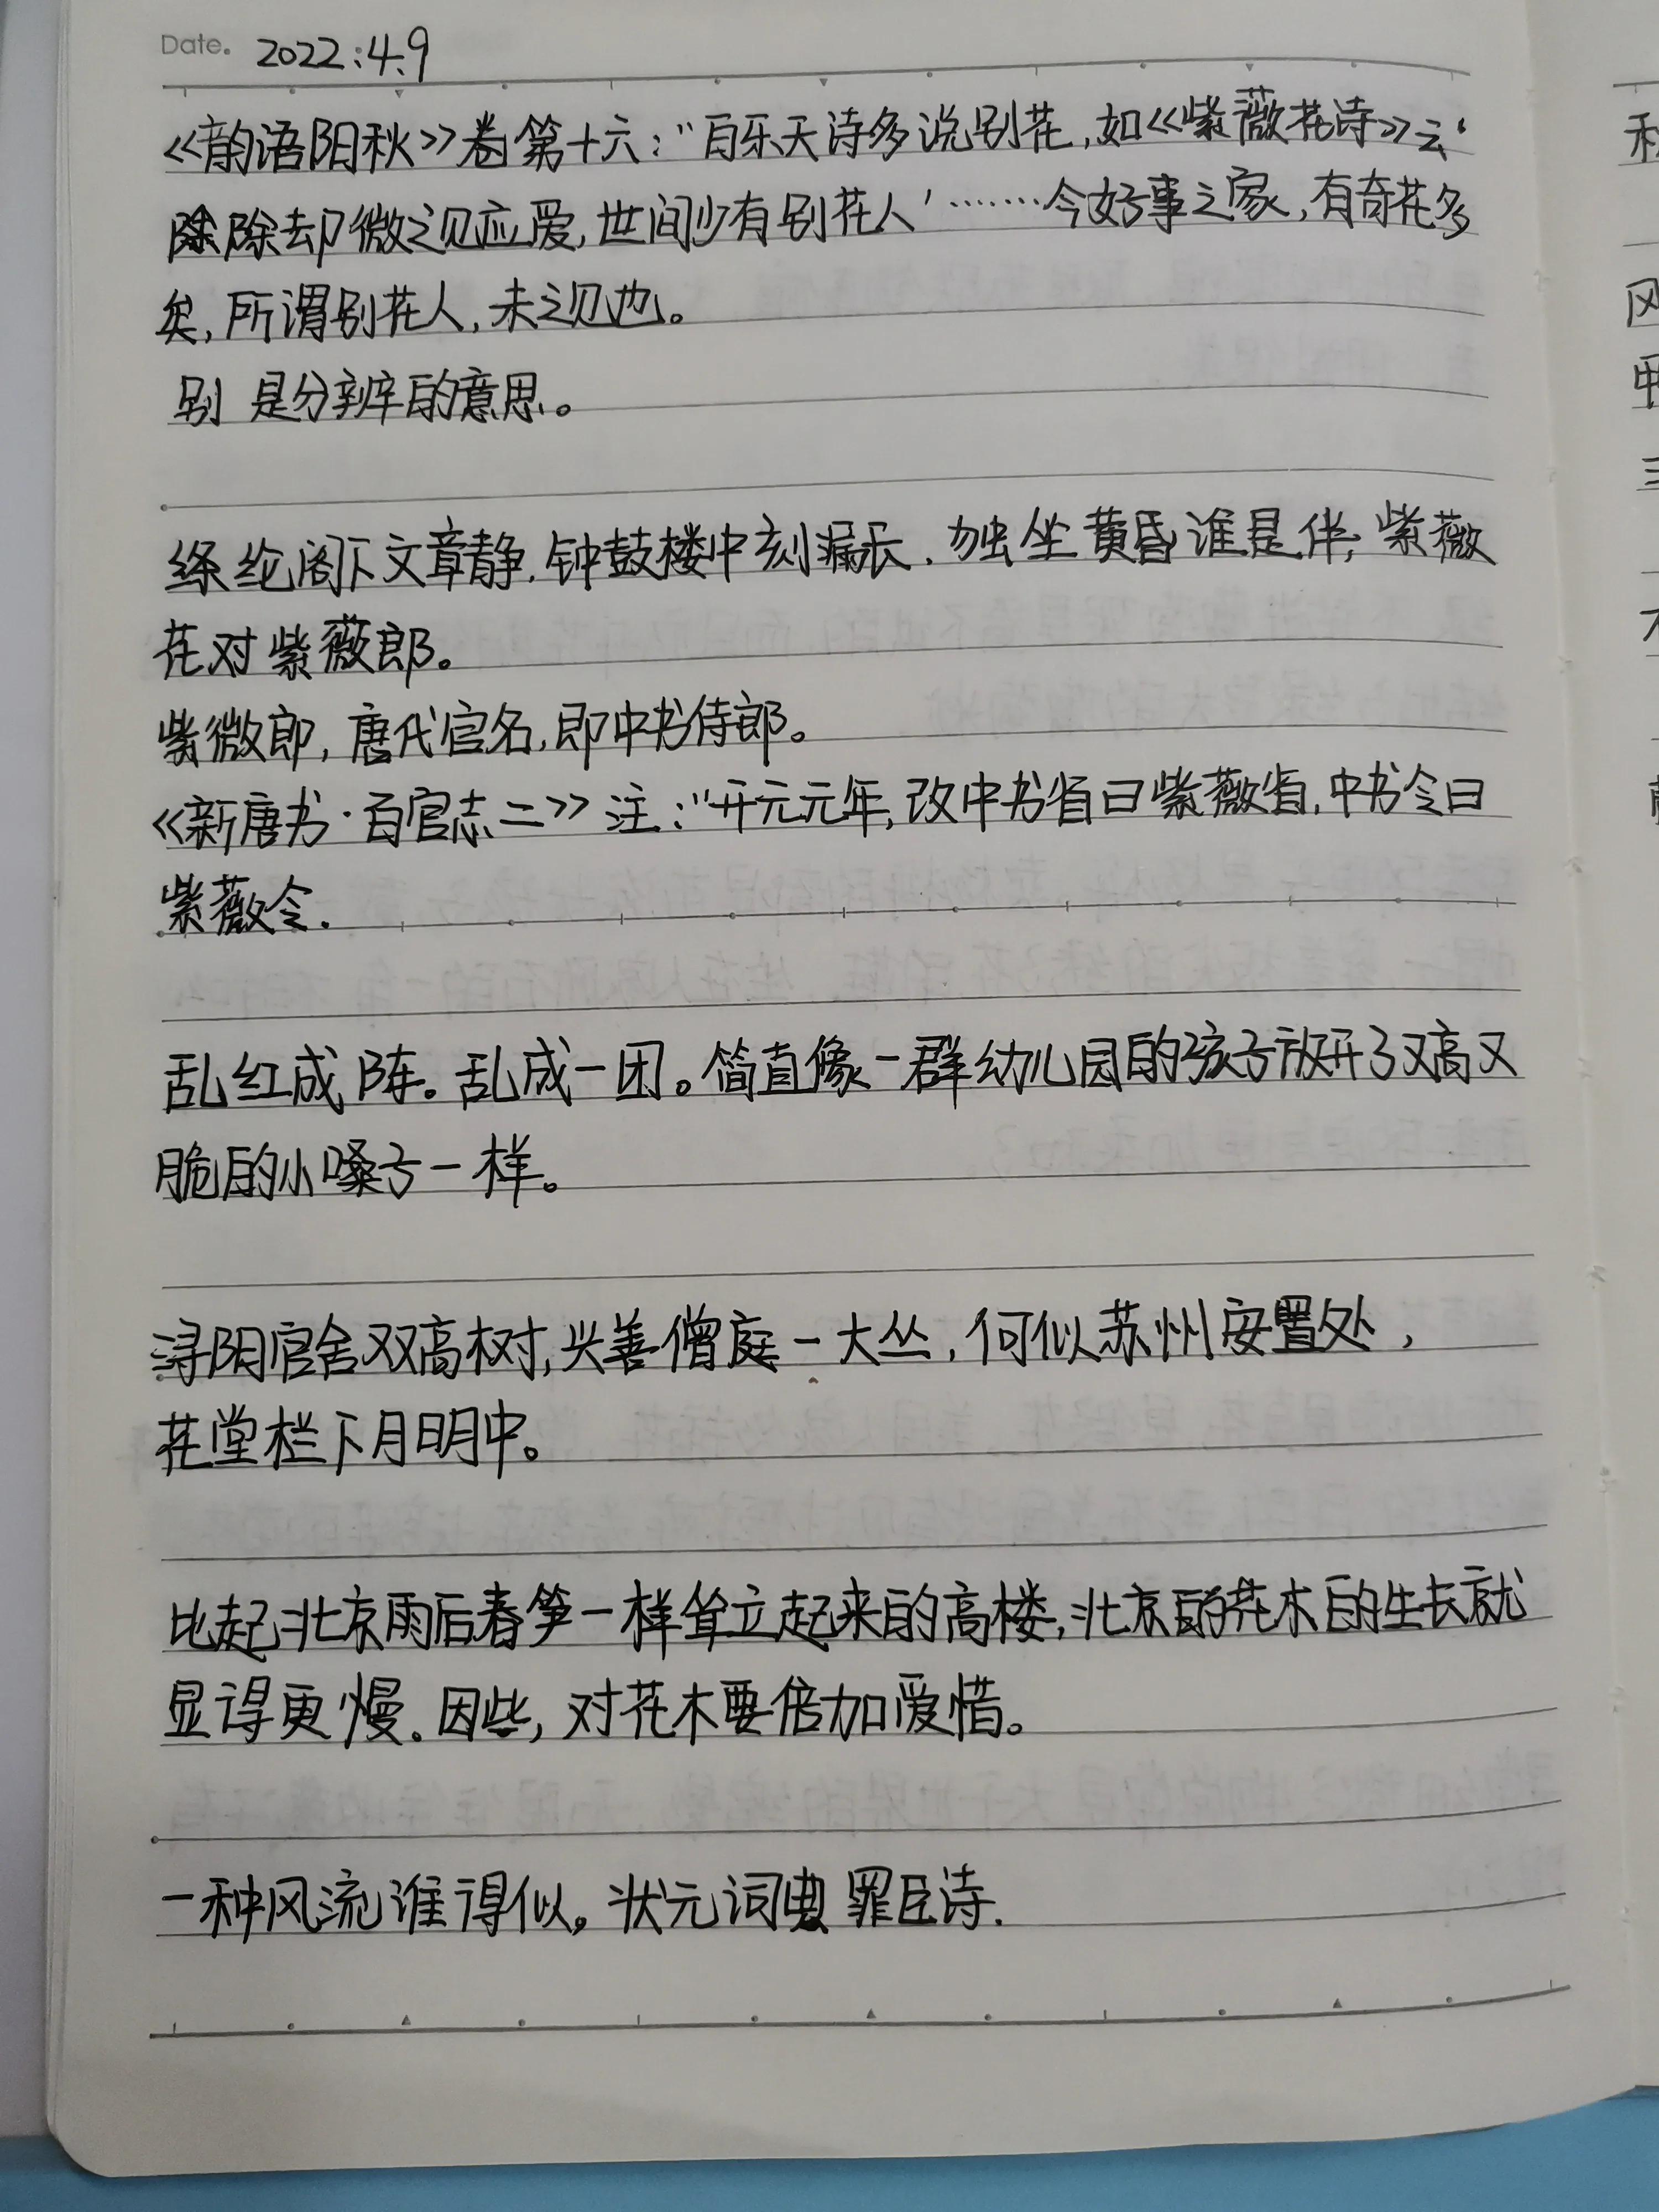 Date. 2022.4.9
《韵语阳秋》卷第十六：“白乐天诗多说别花，如《紫薇花诗》云‘
除除却微之见应爱，世间少有别花人’……今好事之家，有奇花多
矣，所谓别花人，未之见也。
别 是分辨的意思。
丝纶阁下文章静，钟鼓楼中刻漏长，独坐黄昏谁是伴，紫薇
花对紫薇郎。
紫微郎，唐代官名，即中书侍郎。
《新唐书·百官志二》注：“开元元年，改中书省曰紫薇省，中书令曰
紫薇令.
乱红成阵。乱成一团。简直像一群幼儿园的孩子放开了又高又
脆的小嗓子一样。
浔阳官舍双高树，兴善僧庭一大丛，何似苏州安置处，
花堂栏下月明中。
比起北京雨后春笋一样耸立起来的高楼，北京的花木的生长就
显得更慢。因些，对花木要倍加爱惜。
一种风流谁得似，状元词典 罪臣诗.
秋
风